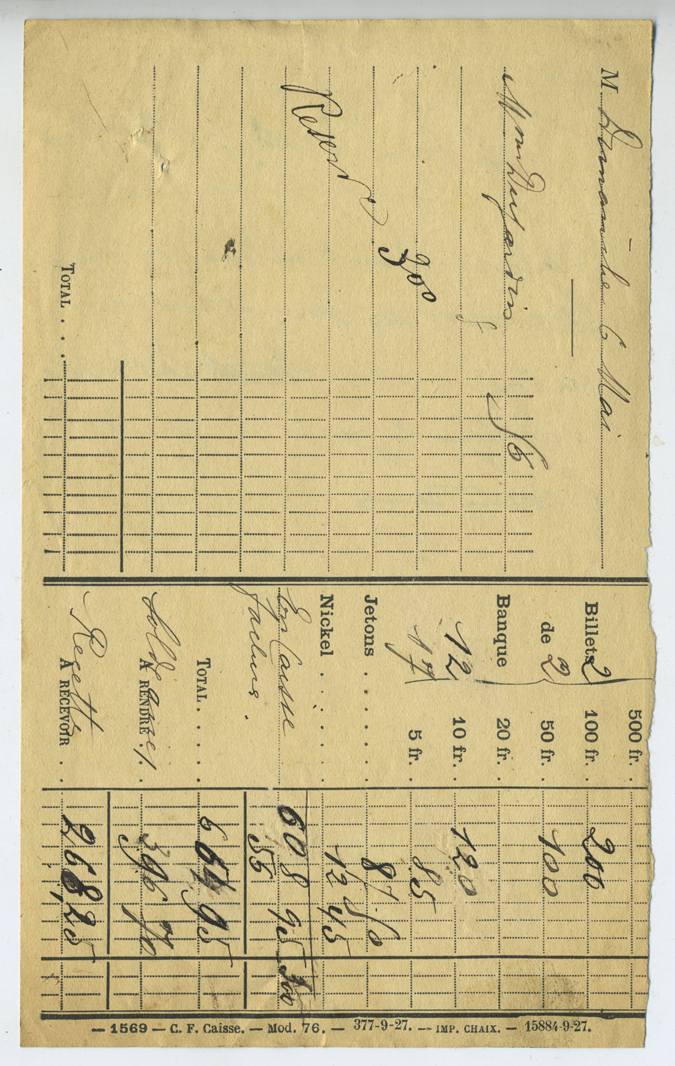 M. Dimanche 6 Mai
Mon Dujardin 56
Reserv 300
TOTAL . . . .
500 fr. .
Billets 2 100 fr. . 200
de 2 50 fr. . 100
Banque 20 fr. .
12 10 fr. . 120
17 5 fr. . 85
Jetons . . . . . . 87 50
Nickel . . . . . . 12 45
En Caisse 608 95 300
facture. 56
TOTAL. . . . 664 95
Solde A RENDRE . 396 70
Recette A RECEVOIR . . 268,25
— 1569 — C. F. Caisse. — Mod. 76. — 377-9-27. — IMP. CHAIX. — 15884-9-27.